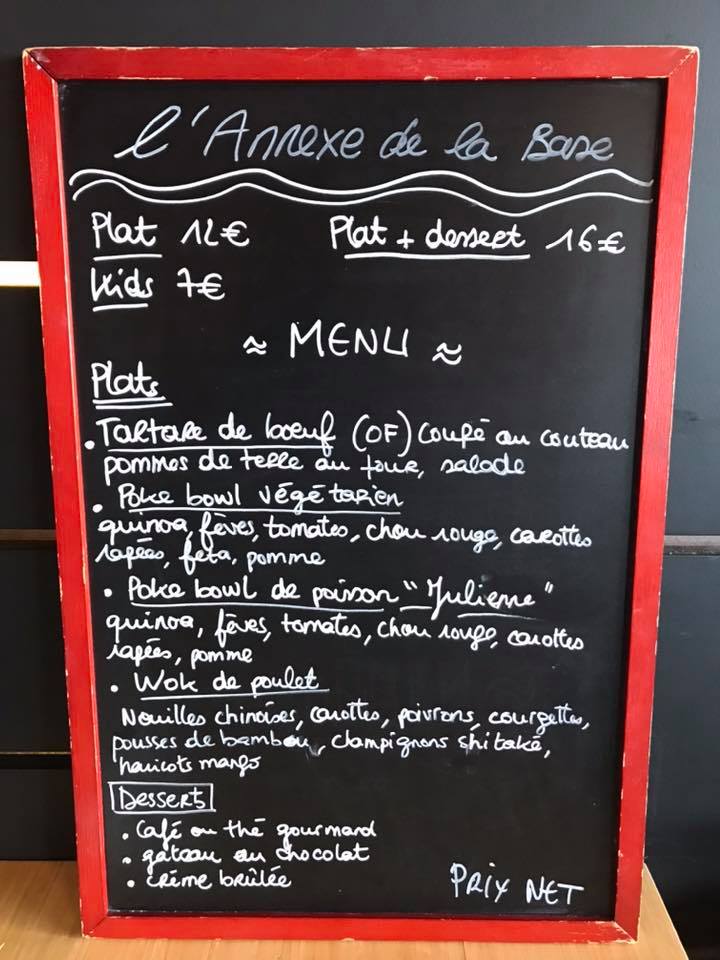 l'Annexe de la Base
Plat 12€ Plat + dessert 16€
Kids 7€
≈ MENU ≈
Plats
• Tartare de boeuf (OF) coupé au couteau
pommes de terre au four, salade
• Poke bowl végétarien
quinoa, fèves, tomates, chou rouge, carottes
rapées, feta, pomme
• Poke bowl de poisson "Julienne"
quinoa, fèves, tomates, chou rouge, carottes
rapées, pomme
• Wok de poulet
Nouilles chinoises, carottes, poivrons, courgettes,
pousses de bambou, champignons shitaké,
haricots mango
Desserts
• Café ou thé gourmand
• gâteau au chocolat
• crème brûlée
PRIX NET